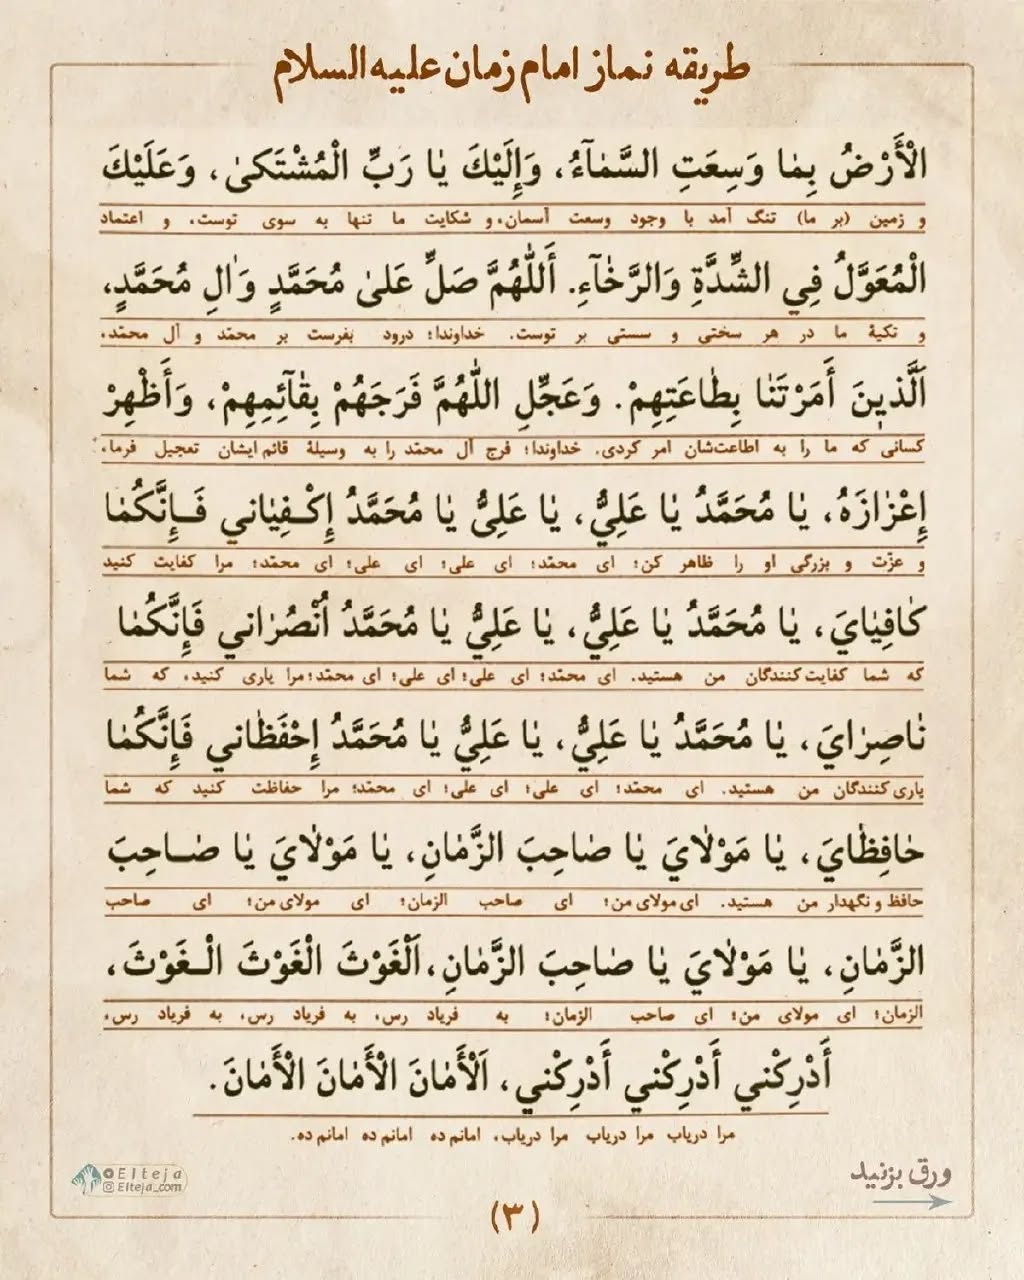 طریقه نماز امام زمان علیه السلام
الْأَرْضُ بِمٰا وَسِعَتِ السَّمٰآءُ، وَإِلَيْكَ يٰا رَبِّ الْمُشْتَكىٰ، وَعَلَيْكَ
و زمین (بر ما) تنگ آمد با وجود وسعت آسمان، و شکایت ما تنها به سوی توست، و اعتماد
الْمُعَوَّلُ فِي الشِّدَّةِ وَالرَّخٰآءِ. أَللّٰهُمَّ صَلِّ عَلىٰ مُحَمَّدٍ وَاٰلِ مُحَمَّدٍ،
و تکیهٔ ما در هر سختی و سستی بر توست. خداوندا؛ درود بفرست بر محمّد و آل محمّد،
اَلَّذينَ أَمَرْتَنٰا بِطٰاعَتِهِمْ. وَعَجِّلِ اللّٰهُمَّ فَرَجَهُمْ بِقٰآئِمِهِمْ، وَأَظْهِرْ
کسانی که ما را به اطاعت‌شان امر کردی. خداوندا؛ فرج آل محمّد را به وسیلهٔ قائم ایشان تعجیل فرما،
إِعْزٰازَهُ، يٰا مُحَمَّدُ يٰا عَلِيُّ، يٰا عَلِيُّ يٰا مُحَمَّدُ إِكْـفِيٰاني فَـإِنَّكُمٰا
و عزّت و بزرگی او را ظاهر کن؛ ای محمّد؛ ای علی؛ ای علی؛ ای محمّد؛ مرا کفایت کنید
كٰافِيٰايَ، يٰا مُحَمَّدُ يٰا عَلِيُّ، يٰا عَلِيُّ يٰا مُحَمَّدُ اُنْصُرٰاني فَإِنَّكُمٰا
که شما کفایت‌کنندگان من هستید. ای محمّد؛ ای علی؛ ای علی؛ ای محمّد؛ مرا یاری کنید، که شما
نٰاصِرٰايَ، يٰا مُحَمَّدُ يٰا عَلِيُّ، يٰا عَلِيُّ يٰا مُحَمَّدُ إِحْفَظٰاني فَإِنَّكُمٰا
یاری‌کنندگان من هستید. ای محمّد؛ ای علی؛ ای علی؛ ای محمّد؛ مرا حفاظت کنید که شما
حٰافِظٰايَ، يٰا مَوْلٰايَ يٰا صٰاحِبَ الزَّمٰانِ، يٰا مَوْلٰايَ يٰا صٰـاحِبَ
حافظ و نگهدار من هستید. ای مولای من؛ ای صاحب الزمان؛ ای مولای من؛ ای صاحب
الزَّمٰانِ، يٰا مَوْلٰايَ يٰا صٰاحِبَ الزَّمٰانِ، اَلْغَوْثَ الْغَوْثَ الْـغَوْثَ،
الزمان؛ ای مولای من؛ ای صاحب الزمان؛ به فریاد رس، به فریاد رس، به فریاد رس،
أَدْرِكْني أَدْرِكْني أَدْرِكْني، اَلْأَمٰانَ الْأَمٰانَ الْأَمٰانَ.
مرا دریاب مرا دریاب مرا دریاب، امانم ده امانم ده امانم ده.
ورق بزنید
Elteja
Elteja_com
(۳)